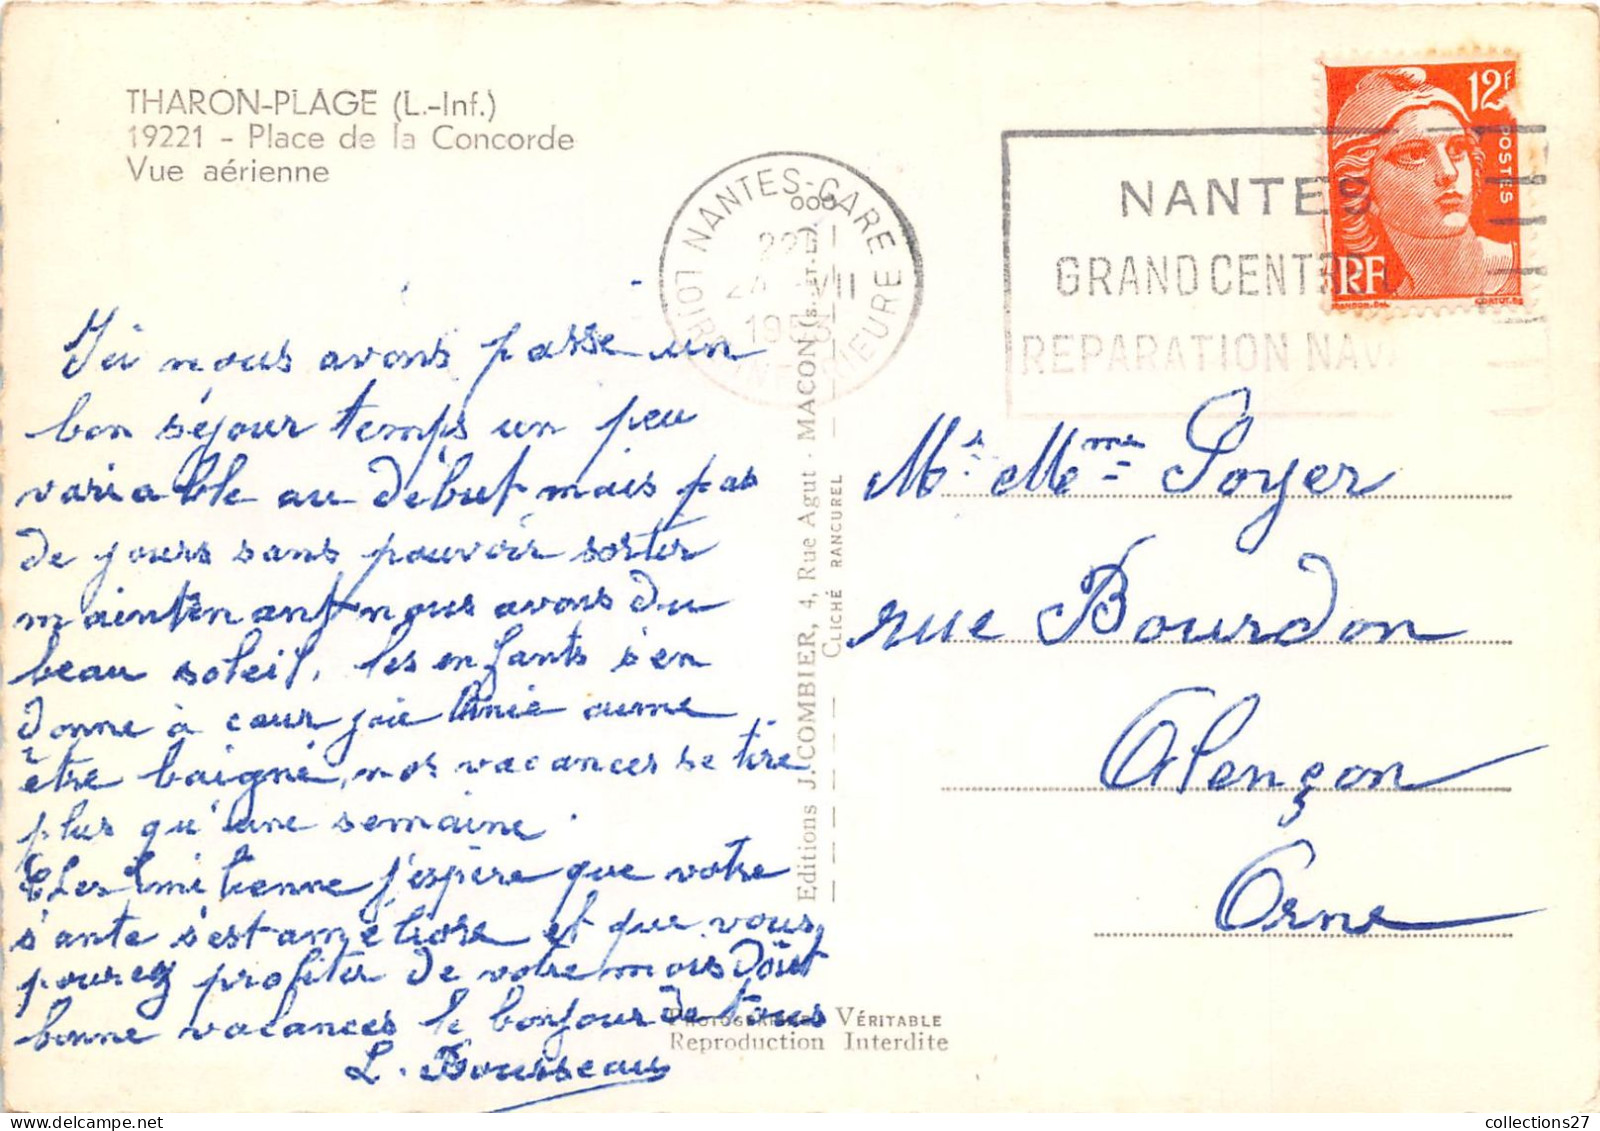 THARON-PLAGE (L.-Inf.)
19221 - Place de la Concorde
Vue aérienne
NANTES-GARE
LOIRE INFÉRIEURE
NANTES
GRAND CENTRE
REPARATION NAV
12F
POSTES
RF
Ici nous avons passe un
bon séjour temps un peu
variable au début mais pas
de jours sans pouvoir sortir
maintenant nous avons du
beau soleil, les enfants s'en
donne à cœur joie Annie aime
être baigné, nos vacances se tire
plus qu'une semaine.
Etienne j'espère que votre
s'ante s'est améliore et que vous
pourez profiter de votre mois Dôut
bonne vacances le bonjour de tous
L. Bourseau
Mr Mme Poyer
rue Bourdon
Alençon
Orne
Editions J. COMBIER, 4, Rue Agut - MACON (S.-ET-L.)
CLICHÉ RANCUREL
PHOTOGRAPHIE VÉRITABLE
Reproduction Interdite
collections27